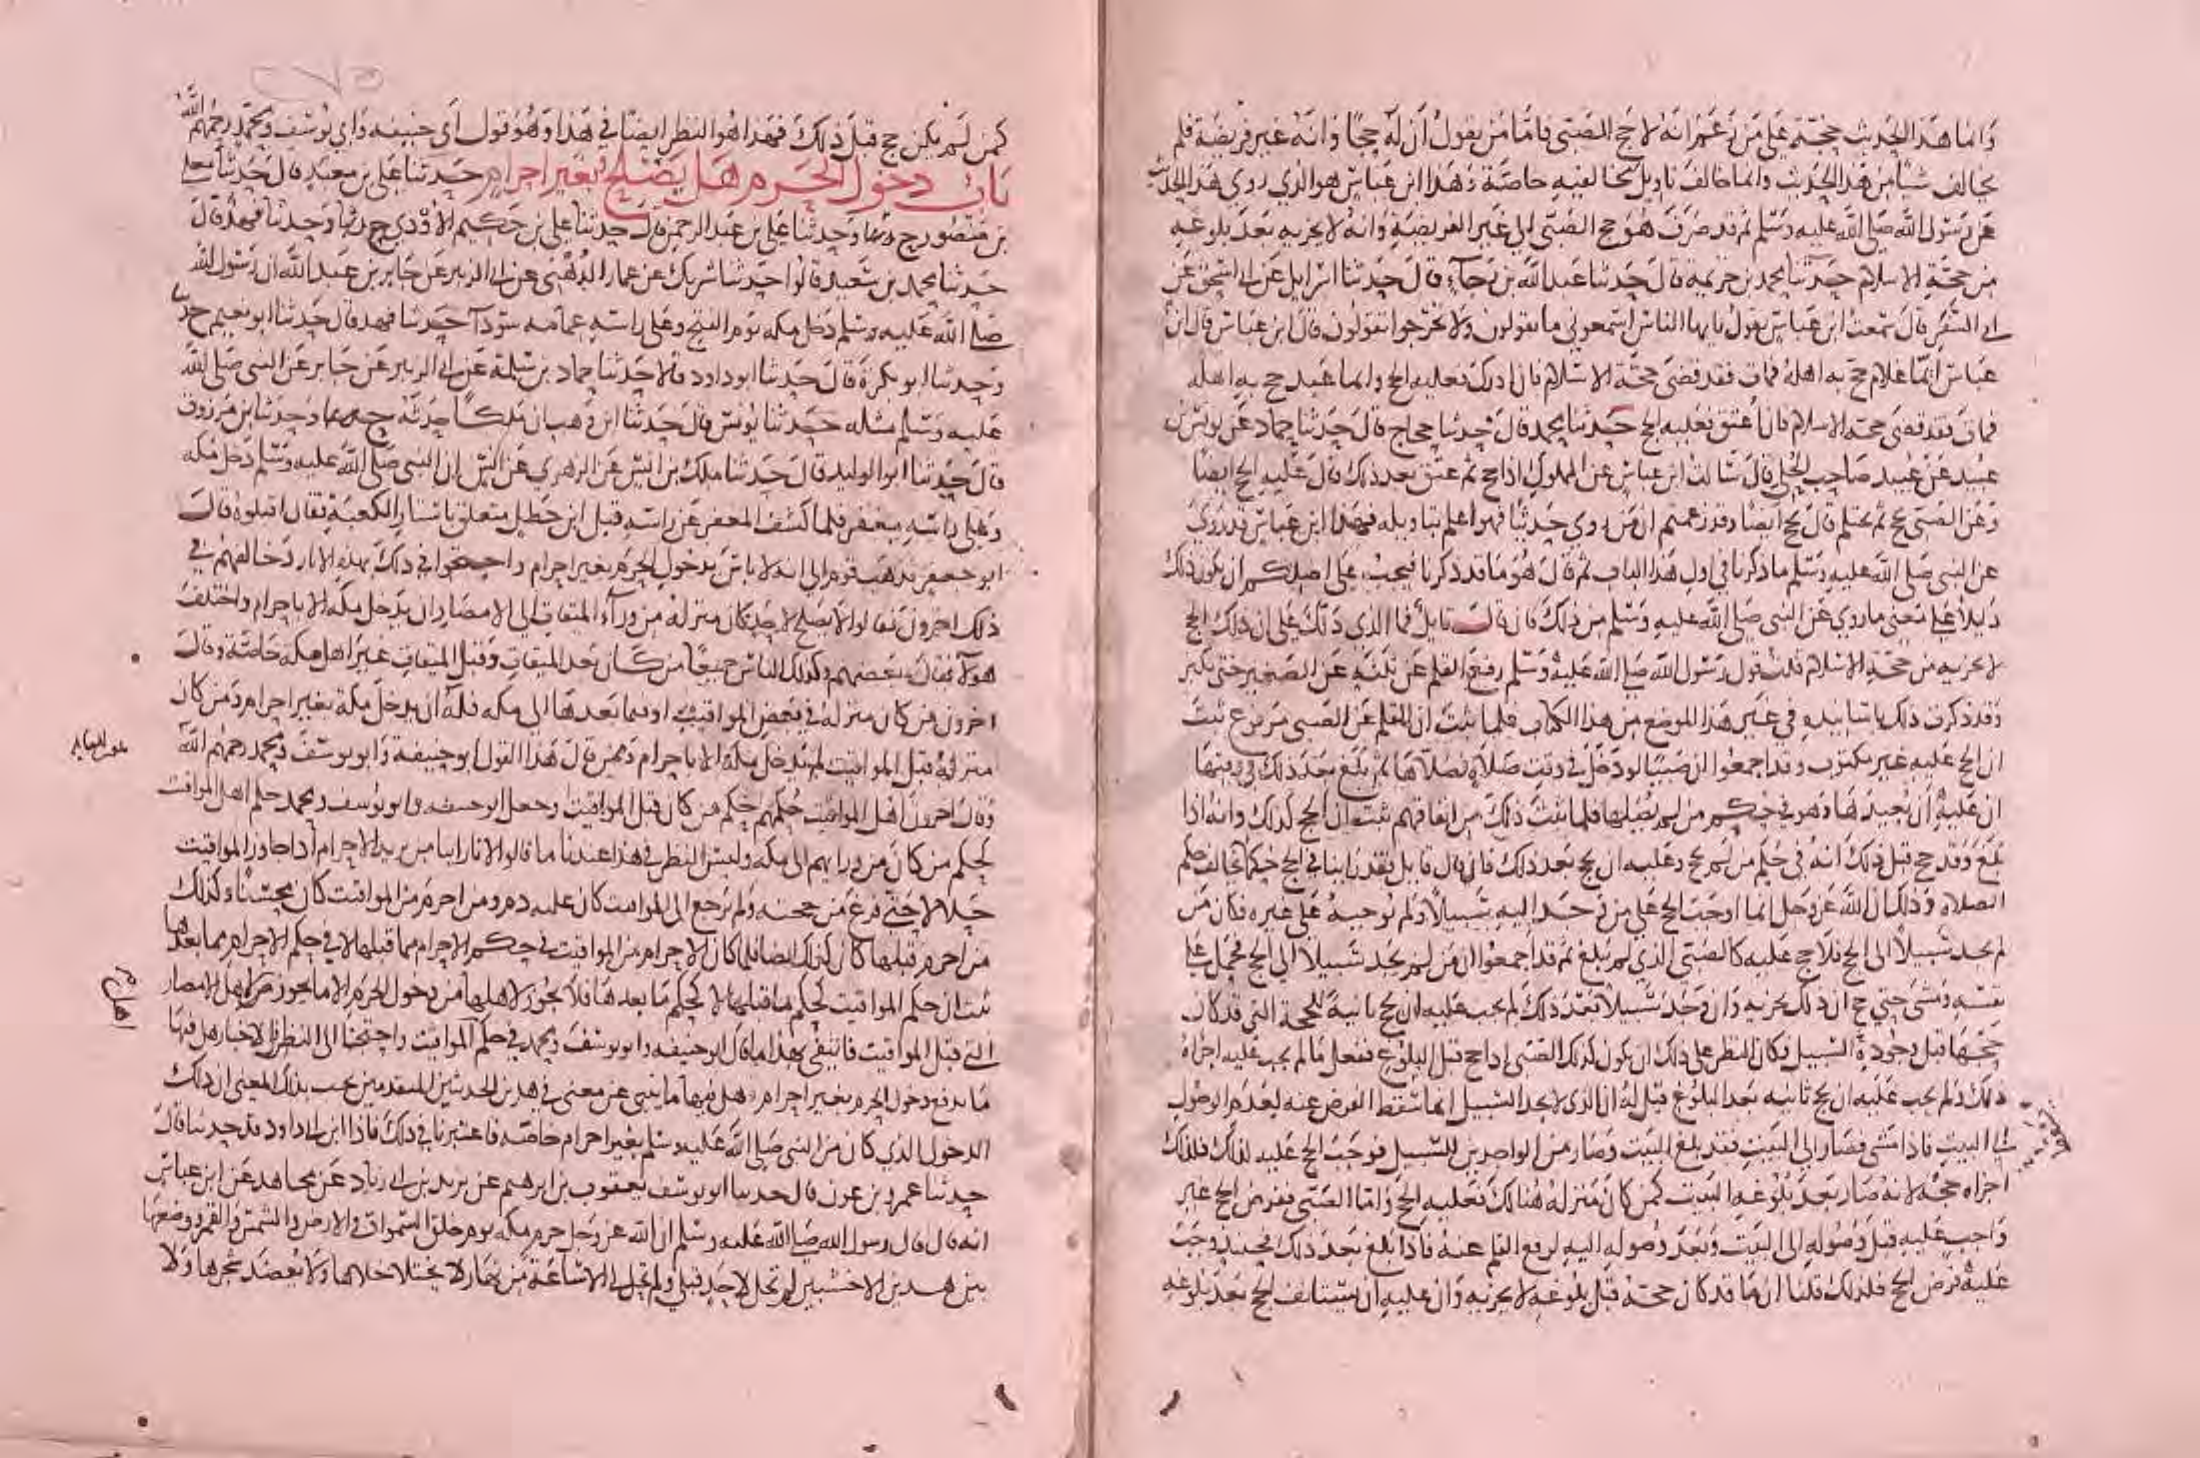 وانما هذا الحديث حجة على من زعم انه لا حج للصبي فاما من يقول أن له حجا وانه غير فريضة فلم
يخالف شيئا من هذا الحديث وانما خالف تاويل مخالفيه خاصة وهذا ابن عباس هو الذي روى هذا الحديث
عن رسول الله صلى الله عليه وسلم ثم قد صرف هو حج الصبي الى غير الفريضة وانه لا يجزيه بعد بلوغه
من حجة الاسلام حدثنا محمد بن خزيمة قال حدثنا عبد الله بن رجاء قال حدثنا اسرايل عن ابي اسحق عن
ابي السفر قال سمعت ابن عباس يقول يايها الناس اسمعوني ما تقولون ولا تخرجوا تقولون قال ابن عباس قال ابن
عباس ايما غلام حج به اهله فمات فقد قضى حجة الاسلام فان ادرك فعليه الحج وايما عبد حج به اهله
فمات فقد قضى حجة الاسلام فان أعتق فعليه الحج حدثنا محمد قال حدثنا حجاج قال حدثنا حماد عن يونس بن
عبيد عن عبيد صاحب الحلي قال سالت ابن عباس عن المملوك اذا حج ثم عتق بعد ذلك قال عليه الحج ايضا
وعن الصبي يحج ثم يحتلم قال يحج ايضا وقد زعمتم ان من روى حديثا فهو اعلم بتاويله فهذا ابن عباس قد روى
عن النبي صلى الله عليه وسلم ما ذكرنا في اول هذا الباب ثم قال هو ما قد ذكرنا فيجب على اصلكم ان يكون ذلك
دليلا على معنى ما روي عن النبي صلى الله عليه وسلم من ذلك فان قال قايل فما الذي دلك على ان ذلك الحج
لا يجزيه من حجة الاسلام قلت قول رسول الله صلى الله عليه وسلم رفع القلم عن ثلثة عن الصغير حتى يكبر
وقد ذكرت ذلك باسانيده في غير هذا الموضع من هذا الكتاب فلما ثبت ان القلم عن الصبي مرفوع ثبت
ان الحج عليه غير مكتوب وقد اجمعوا ان صبيا لو دخل في وقت صلاة فصلاها ثم بلغ بعد ذلك في وقتها
ان عليه أن يعيدها وهو في حكم من لم يصلها فلما ثبت ذلك من اتفاقهم ثبت ان الحج كذلك وانه اذا
بلغ وقد حج قبل ذلك انه في حكم من لم يحج وعليه ان يحج بعد ذلك فان قال قايل فقد راينا في الحج حكما يخالف حكم
الصلاة وذلك ان الله عز وجل انما اوجب الحج على من وجد اليه سبيلا ولم يوجبه على غيره فكان من
لم يجد سبيلا الى الحج فلا حج عليه كالصبي الذي لم يبلغ ثم قد اجمعوا ان من لم يجد سبيلا الى الحج فحمل على
نفسه ومشى حتى حج ان ذلك يجزيه وان وجد سبيلا بعد ذلك لم يجب عليه ان يحج ثانية للحجة التي قد كان
حجها قبل وجوده السبيل فكان النظر على ذلك ان يكون كذلك الصبي اذا حج قبل البلوغ ففعل ما لم يجب عليه اجزاه
ذلك ولم يجب عليه ان يحج ثانيه بعد البلوغ قيل له ان الذي لا يجد السبيل انما سقط الفرض عنه لعدم الوصول
الى البيت فاذا مشى فصار الى البيت فقد بلغ البيت وصار من الواجدين للسبيل فوجب الحج عليه لذلك فلذلك
اجزاه حجه لانه صار بعد بلوغه البيت كمن كان منزله هنالك فعليه الحج واما الصبي ففرض الحج غير
واجب عليه قبل وصوله الى البيت وبعد وصوله اليه لرفع القلم عنه فاذا بلغ بعد ذلك فحينئذ وجب
عليه فرض الحج فلذلك قلنا ان ما قد كان حجه قبل بلوغه لا يجزيه وان عليه ان يستانف الحج بعد بلوغه
كمن لم يكن حج قبل ذلك فهذا هو النظر ايضا في هذا وهو قول أبي حنيفه وابي يوسف ومحمد رحمهم الله
باب دخول الحرم هل يصلح بغير احرام حدثنا على بن معبد قال حدثنا معلى
بن منصور ح وحدثنا على بن عبد الرحمن قال حدثنا على بن حكيم الاودي ح وحدثنا فهد قال
حدثنا محمد بن سعيد قالوا حدثنا شريك عن عمار الدهني عن ابي الزبير عن جابر بن عبد الله ان رسول الله
صلى الله عليه وسلم دخل مكه يوم الفتح وعلى راسه عمامه سودآ حدثنا فهد قال حدثنا ابو نعيم ح
وحدثنا ابو بكرة قال حدثنا ابو داود قالا حدثنا حماد بن سلمة عن ابي الزبير عن جابر عن النبي صلى الله
عليه وسلم مثله حدثنا يونس قال حدثنا ابن وهب ان ملكا حدثه ح وحدثنا بن مرزوق
قال حدثنا ابو الوليد قال حدثنا ملك بن انس عن الزهري عن انس ان النبي صلى الله عليه وسلم دخل مكه
وعلى راسه مغفر فلما كشف المغفر عن راسه قيل ابن خطل متعلق باستار الكعبة فقال اقتلوه قال
ابو جعفر فذهب قوم الى انه لا باس بدخول الحرم بغير احرام واحتجوا في ذلك بهذه الاثار وخالفهم في
ذلك اخرون فقالوا لا يصلح لاحد كان منزله من ورآء الميقات الى الامصار ان يدخل مكه الا باحرام واختلف
هولآء فقال بعضهم وكذلك الناس جميعا من كان بعد الميقات وقبل الميقات غير اهل مكه خاصة وقال
اخرون من كان منزله في بعض المواقيت او فيما بعدها الى مكه فله ان يدخل مكة بغير احرام ومن كان
منزله قبل المواقيت لم يدخل مكة الا باحرام وممن قال هذا القول ابو حنيفة وابو يوسف ومحمد رحمهم الله
وقال اخرون اهل المواقيت حكمهم حكم من كان قبل المواقيت وجعل ابو حنيفه وابو يوسف ومحمد حكم اهل المواقيت
كحكم من كان من ورايهم الى مكه وليس النظر في هذا عندنا ما قالوا لانا راينا من يريد الاحرام اذا جاوز المواقيت
حلالا حتى فرغ من حجته ولم يرجع الى المواقيت كان عليه دم ومن احرم من المواقيت كان محسنا وكذلك
من احرم قبلها كان كذلك ايضا فلما كان الاحرام من المواقيت في حكم الاحرام مما قبلها لا في حكم الاحرام مما بعدها
ثبت ان حكم المواقيت كحكم ما قبلها لا كحكم ما بعدها فلا يجوز لاهلها من دخول الحرم الا ما يجوز لاهل الامصار
التي قبل المواقيت فانتفى بهذا ما قال ابو حنيفه وابو يوسف ومحمد في حكم المواقيت واحتجنا الى النظر في الاخبار هل فيها
ما يدفع دخول الحرم بغير احرام وهل فيها ما ينبي عن معنى في هذين الحديثين المتقدمين يجب بذلك المعنى ان ذلك
الدخول الذي كان من النبي صلى الله عليه وسلم بغير احرام خاصه فاعتبرنا في ذلك فاذا ابن ابي داود قد حدثنا قال
حدثنا عمرو بن عون قال حدثنا ابو يوسف يعقوب بن ابرهيم عن يزيد بن ابي زياد عن مجاهد عن ابن عباس
انه قال قال رسول الله صلى الله عليه وسلم ان الله عز وجل حرم مكه يوم خلق السموات والارض والشمس والقمر ووضعها
بين هذين الاخشبين لم تحل لاحد قبلي ولم تحل لي الا ساعة من نهار لا يختلا خلاها ولا يعضد شجرها ولا